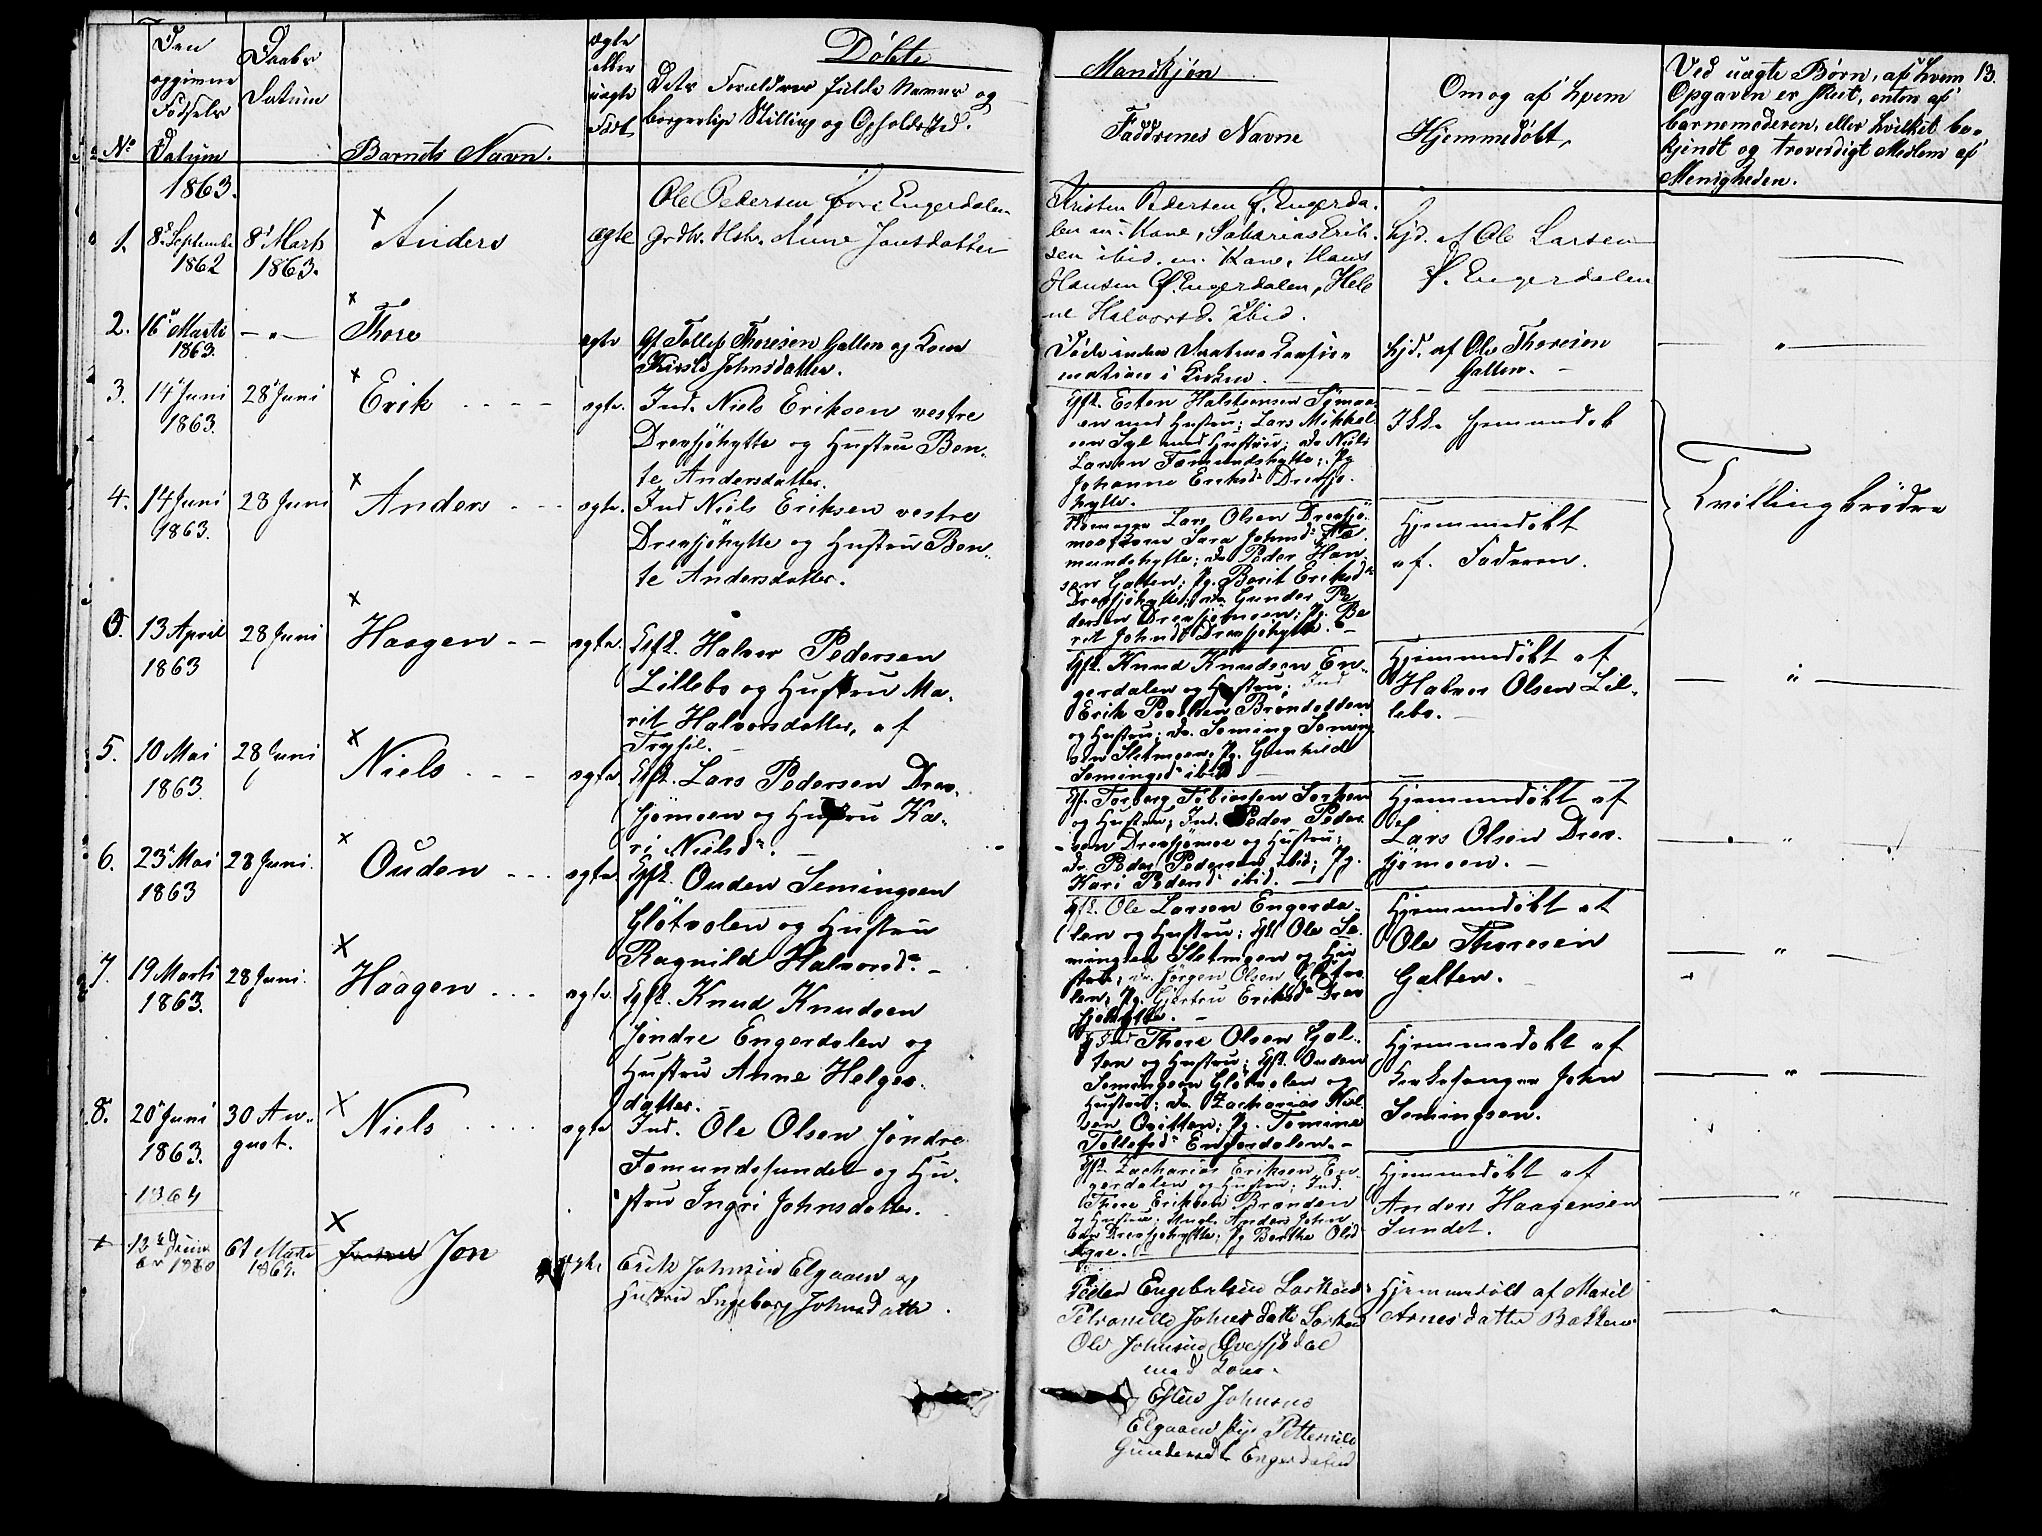 Døbte
Mandkjøn
13.
No
Den opgivne Fødsels Datum
Daabs Datum
Barnets Navn.
ægte eller uægte Født
Dets Forældres fulde Navne og
borgerlige Stilling og Opholdsted.
Faddrenes Navne
Om og af hvem
Hjemmedøbt,
Ved uægte Børn, af hvem
Opgaven er skeet, enten af
barnemoderen, eller hvilket be-
kjendt og troverdigt Medlem af
Menigheden.
1863.
1. 8d Septembr 1862
8d Marts 1863.
Anders
ægte
Ole Pedersen Engerdalen
Grdbr. Hstr. Anne Jonsdatter
Kristen Pedersen Ø. Engerda-
len m. Kone, Sakarias Erik-
sen ibid. m. Kone, Hans
Hansen Ø. Engerdalen, Hele
ne Halvorsd. ibid.
hjd. af Ole Larsen
Ø. Engerdalen
2. 16d Marts 1863.
Thore
ægte
Gf. Tollef Thoresen Galten og Kone
Johnsdatter.
Døde inden Daabens Confir-
mation i Kirken.
hjd. af Ole Thoresen
Galten.
3. 14d Juni 1863.
28d Juni
Erik
ægte.
Ind. Niels Eriksen vestre
Drevsjöhytte og Hustru Ben-
te Andersdatter.
Gfb. Esten Halstensen Sömo-
en med Hustru; Lars Mikkel-
sen Syl med Hustru; do Niels
Larsen Fæmundshytte; Pg
Johanne Eriksd Drevsjö-
hytte.
Ikke hjemmedøb
4. 14 Juni 1863.
28 Juni
Anders
ægte.
Ind Niels Eriksen vestre
Drevsjöhytte og Hustru Ben-
te Andersdatter.
Lars Olsen Drevsjö-
moe Sara Johnsd Fæ-
mundshytte; do Peder Han-
sen Galten; Pg. Berit Eriksd
Drevsjöhytte; do Gunder Pe
dersen Drevsjömoen; Pg. Be
rit Johnsd Drevsjöhytte.
Hjemmedöbt
af Faderen.
Tvillingbrødre
5. 13 April 1863
28 Juni
Haagen
ægte.
Gfb. Halvor Pedersen
Lillebo og Hustru Ma-
rit Halvorsdatter, af
Trysil.
Gfb. Knud Knudsen En-
gerdalen og Hustru; Ind
Erik Brændodden
og Hustru; do. Seming Seming
sen Sletmoen, Pg. Gunhild
Semingsd ibid
Hjemmedöbt af
Halvor Olsen Lil-
lebo.
5. 10 Mai 1863
28 Juni
Niels
ægte
Gfb. Lars Pedersen Drev-
sjömoen og Hustru Ka-
ri Nielsd.
Gf. Torberg Tobiassen Sorken
og Hustru; Ind. Peder Peder
sen Drevsjömoe og Hustru;
do. Peder Pedersen ibid; Pg.
Kari Pedersd ibid.
Hjemmedöbt af
Lars Olsen Drev-
sjömoen.
6. 23d Mai 1863
28 Juni.
Ouden
ægte
Gfb. Ouden Semingsen
Glötvolen og Hustru
Ragnild Halvorsd.
Gfb. Ole Larsen Engerda-
len og Hustru; Gfb Ole Se-
mingsen Sletmoen og Hu
stru; do. Jörgen Olsen Glötvo
len; Pg. Gjertru Eriksd Drev
sjöhytte.
Hjemmedöbt af
Ole Thoresen
Galten.
7. 19 Marts 1863.
28 Juni.
Haagen
ægte.
Gfb. Knud Knudsen
söndre Engerdalen og
Hustru Anne Helges-
datter.
Ind Thore Olsen Gal-
ten og Hustru; Gfb. Ouden
Semingsen Glötvolen og
Hustru; do. Zacharias Niel
sen Qvitten; Pg. Tomine
Tollefsd Engerdalen.
Hjemmedöbt af
Kirkesanger John
Semingsen.
8. 20d Juni 1863.
30 Au-
gust.
Niels
ægte
Ind. Ole Olsen söndre
Fæmundssundet og Hu-
stru Ingri Johnsdatter.
Gfb. Zacharias Eriksen En-
gerdalen og Hustru; Ind.
Thore Eriksen Brænden
og Hustru; Ungk. Anders John
sen Drevsjöhytte; Pg Berthe Olsd
Agre.
Hjemmedöbt af
Anders Haagensen
Sundet.
1864
1860
6t Marts 1864.
Jon
ægte
Erik Johnsen Elgaaen og
Hustru Ingeborg Johnsdatter.
Peder Engebretsen Sorken
Petronille Johnsdatter Sorken
Ole Johnsen Drevsjødal
med Kone
Esten Johnsen
Elgaaen Pige Petternille
Gundersd. Engerdalen
Hjemmedøbt af Marit
Arnesdatter Bakken